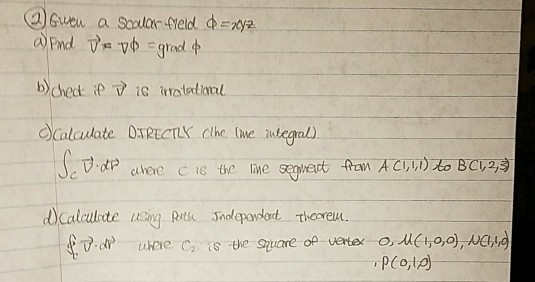 ② Given a scalar field ϕ = xyz
a) Find v⃗ = ∇ϕ = grad ϕ
b) check if v⃗ is irrotational
c) Calculate DIRECTLY (the line integral)
∫c v⃗·dr⃗ where C is the line segment from A(1,1,1) to B(1,2,3)
d) calculate using Path Independent Theorem.
∮c₂ v⃗·dr⃗ where C₂ is the square of vertex O, M(1,0,0), N(1,1,0)
, P(0,1,0)